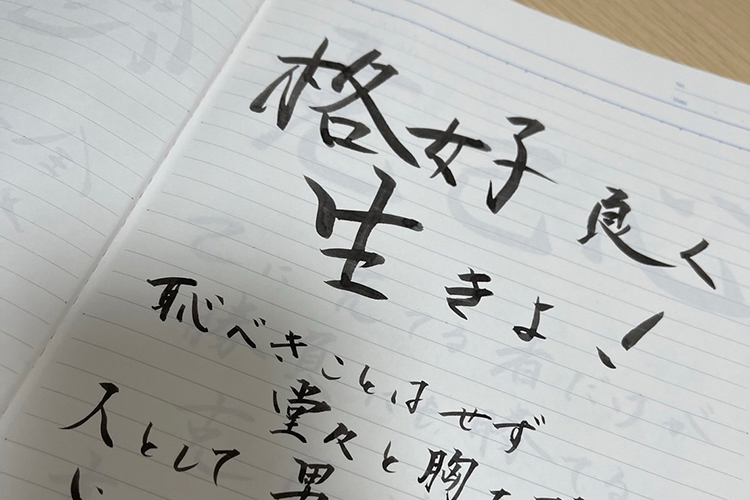 格好良く
生きよ!
恥べきことはせず
堂々と胸を
人として男